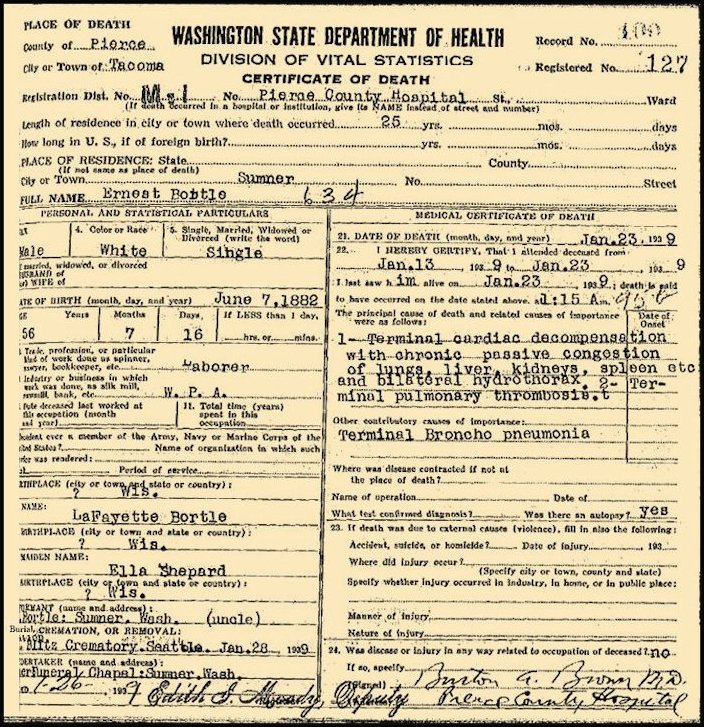 PLACE OF DEATH
County of Pierce
City or Town of Tacoma
WASHINGTON STATE DEPARTMENT OF HEALTH
DIVISION OF VITAL STATISTICS
CERTIFICATE OF DEATH
Record No. 100
Registered No. 127
Registration Dist. No. No. Pierce County Hospital St., Ward
(If death occurred in a hospital or institution, give its NAME instead of street and number)
Length of residence in city or town where death occurred 25 yrs. mos. days
How long in U. S., if of foreign birth? yrs. mos. days
PLACE OF RESIDENCE: State County
(If not name as place of death)
City or Town Sumner No. Street
FULL NAME Ernest Bortle 634
PERSONAL AND STATISTICAL PARTICULARS
4. Color or Race
5. Single, Married, Widowed or
Divorced (write the word)
Male White Single
If married, widowed, or divorced
HUSBAND of
(or) WIFE of
DATE OF BIRTH (month, day, and year) June 7, 1882
Years Months Days If LESS than 1 day,
56 7 16 hrs. or mins.
Trade, profession, or particular
kind of work done as spinner,
sawyer, bookkeeper, etc. Laborer
Industry or business in which
work was done, as silk mill,
sawmill, bank, etc. W. P. A.
Date deceased last worked at
this occupation (month
and year)
11. Total time (years)
spent in this
occupation
ever a member of the Army, Navy or Marine Corps of the
United States? Name of organization in which
service was rendered:
Period of service
BIRTHPLACE (city or town and state or country):
? Wis.
NAME:
LaFayette Bortle
BIRTHPLACE (city or town and state or country):
? Wis.
MAIDEN NAME:
Ella Shepard
BIRTHPLACE (city or town and state or country):
? Wis.
INFORMANT (name and address):
Bortle: Sumner, Wash. (uncle)
Burial, CREMATION, OR REMOVAL:
Mitz Crematory. Seattle. Jan. 28 1939
UNDERTAKER (name and address):
Funeral Chapel: Sumner. Wash.
1-26- 1939 Edith J. Deputy
MEDICAL CERTIFICATE OF DEATH
21. DATE OF DEATH (month, day, and year) Jan. 23, 1939
22. I HEREBY CERTIFY, That I attended deceased from
Jan. 13 1939 to Jan. 23 1939
I last saw him alive on Jan. 23 1939; death is said
to have occurred on the date stated above. 1:15 A m.
The principal cause of death and related causes of importance
were as follows:
Date of
Onset
1- Terminal cardiac decompensation
with chronic passive congestion
of lungs, liver, kidneys, spleen etc
and bilateral hydrothorax. 2- Ter-
minal pulmonary thrombosis.t
Other contributory causes of importance:
Terminal Broncho pneumonia
Where was disease contracted if not at
the place of death?
Name of operation Date of
What test confirmed diagnosis? Was there an autopsy? yes
23. If death was due to external causes (violence), fill in also the following:
Accident, suicide, or homicide? Date of injury 193
Where did injury occur?
(Specify city or town, county and state)
Specify whether injury occurred in industry, in home, or in public place:
Manner of injury
Nature of injury
24. Was disease or injury in any way related to occupation of deceased? no
If so, specify
(Signed) Burton A. Brown M.D.
Pierce County Hospital